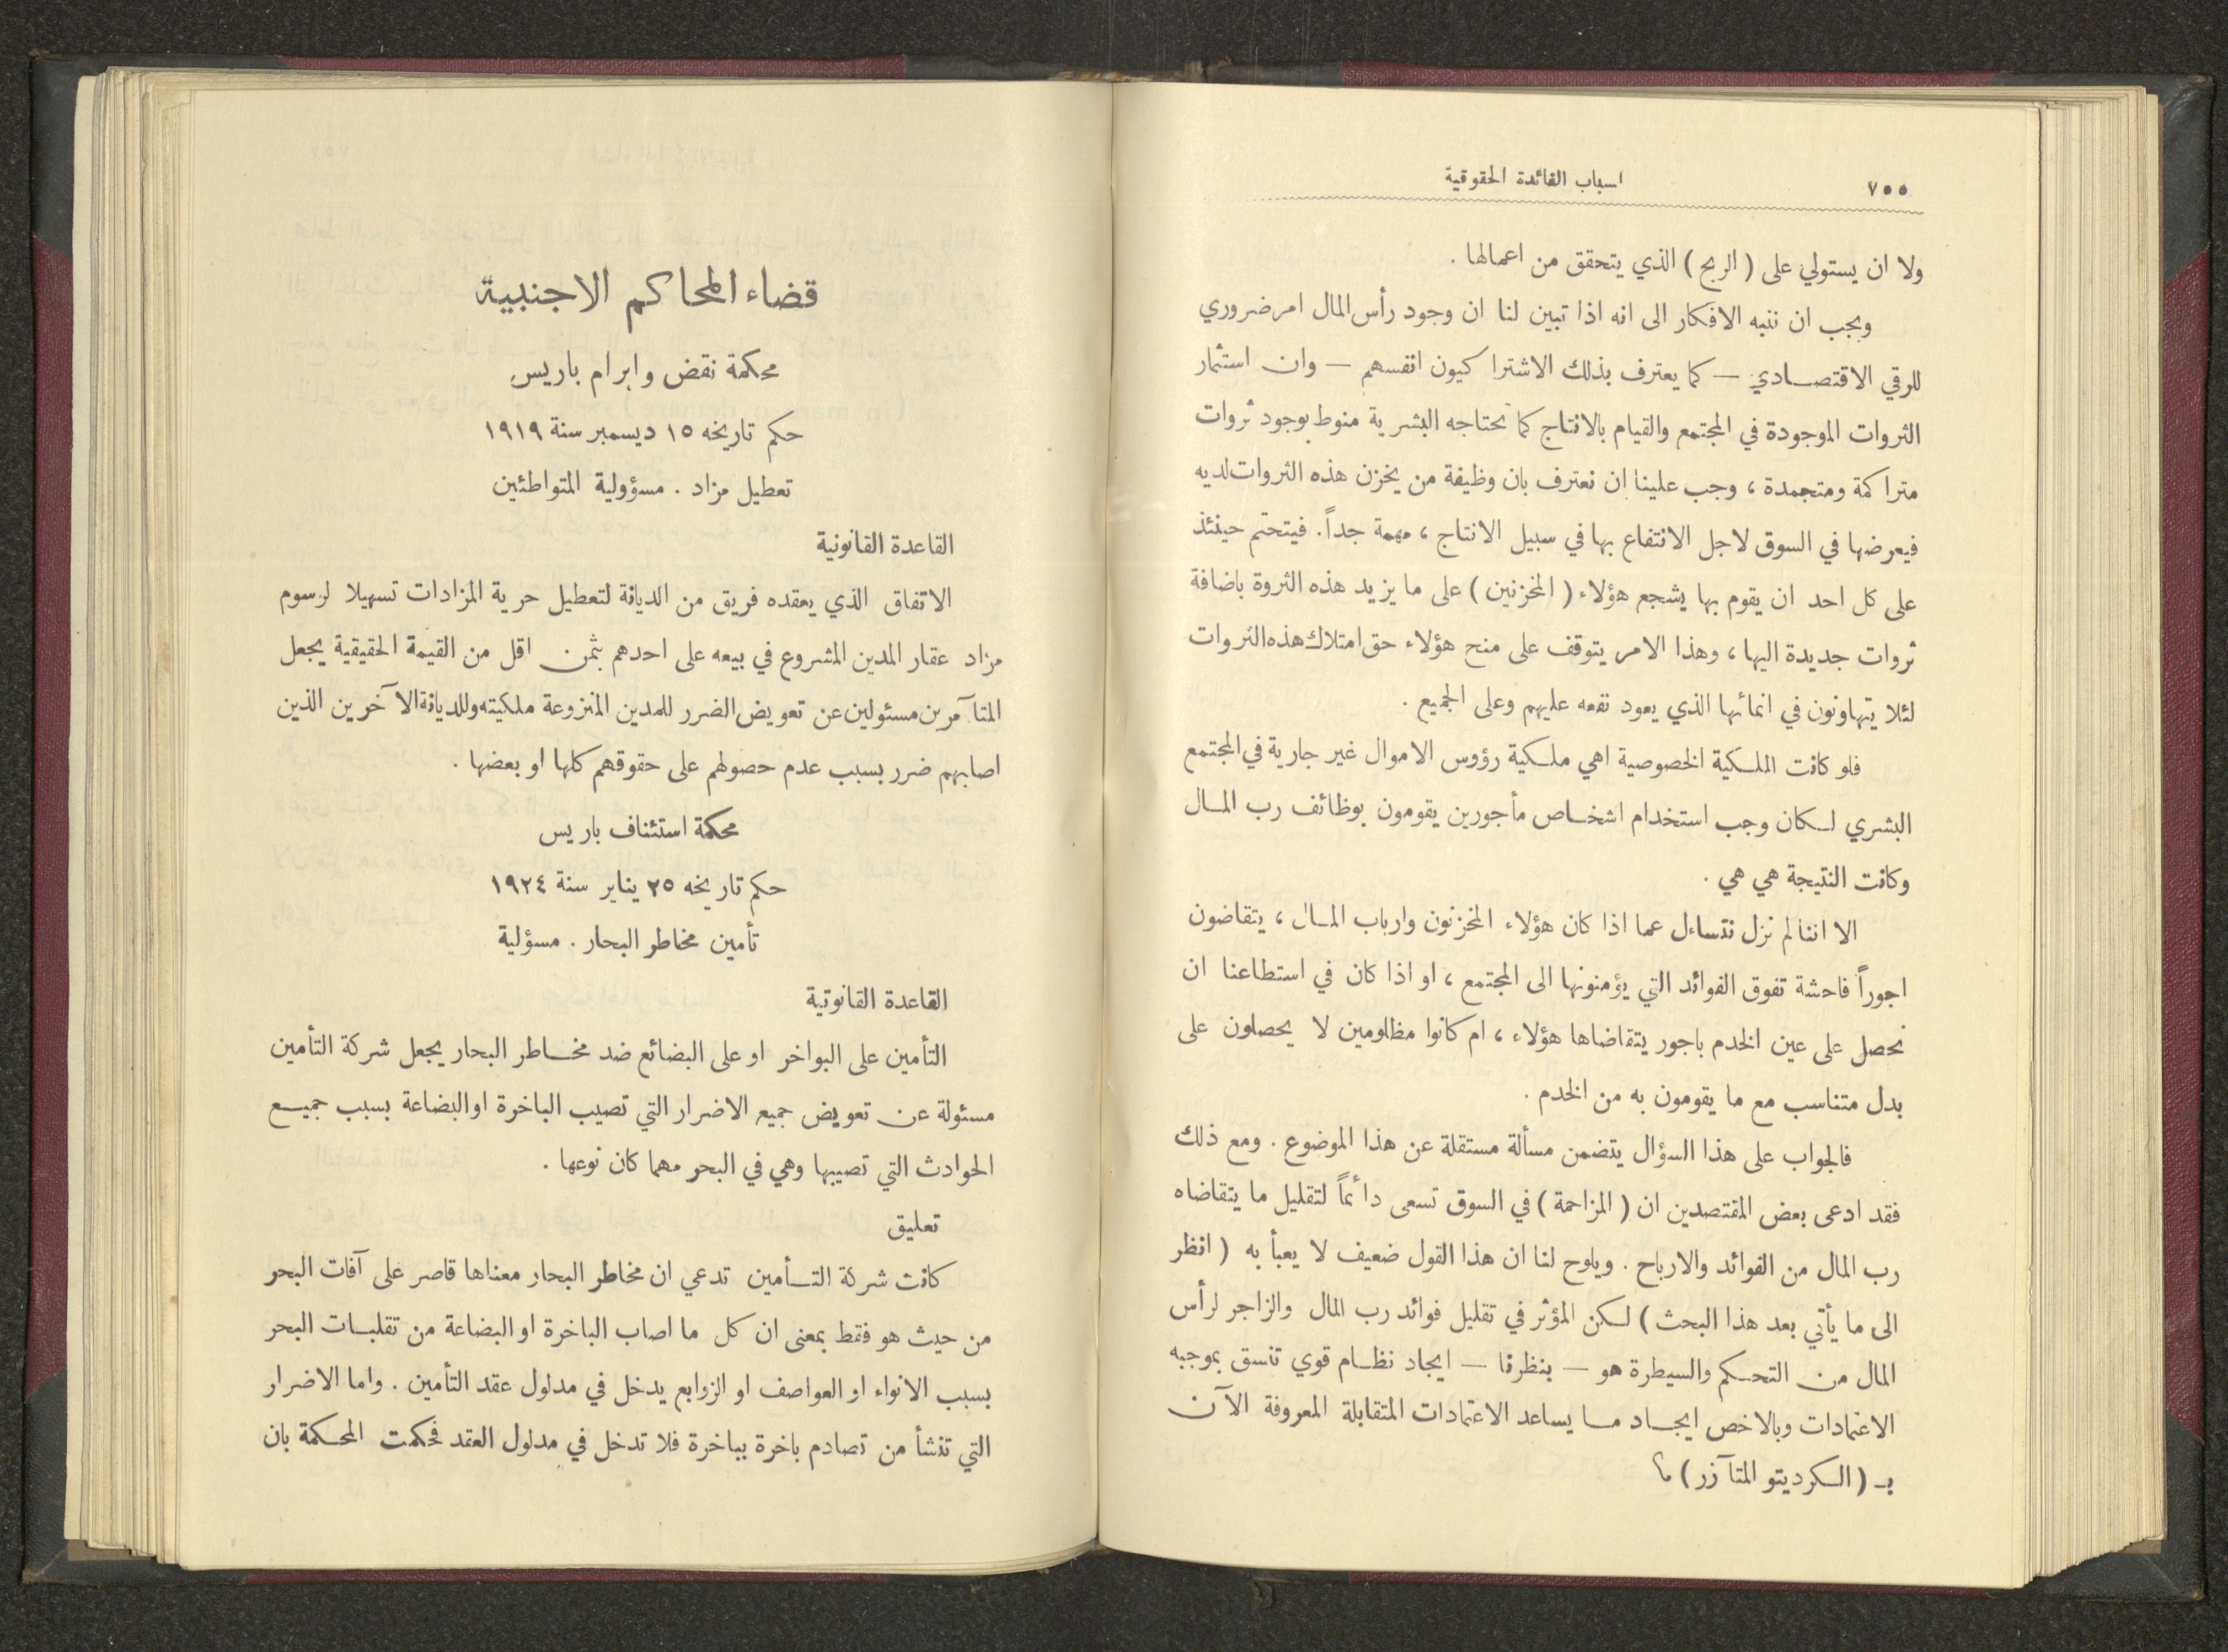 ٧٥٥
اسباب الفائدة الحقوقية
ولا ان يستولي على ( الربح ) الذي يتحقق من اعمالها .
ويجب ان ننبه الافكار الى انه اذا تبين لنا ان وجود رأس المال امر ضروري
للرقي الاقتصادي — كما يعترف بذلك الاشتراكيون انفسهم — وان استثمار
الثروات الموجودة في المجتمع والقيام بالانتاج كما تحتاجه البشرية منوط بوجود ثروات
متراكمة ومتجمدة ، وجب علينا ان نعترف بان وظيفة من يخزن هذه الثروات لديه
فيعرضها في السوق لاجل الانتفاع بها في سبيل الانتاج ، مهمة جداً . فيتحتم حينئذ
على كل احد ان يقوم بها يشجع هؤلاء ( المخزنين ) على ما يزيد هذه الثروة باضافة
ثروات جديدة اليها ، وهذا الامر يتوقف على منح هؤلاء حق امتلاك هذه الثروات
لئلا يتهاونون في انمائها الذي يعود نفعه عليهم وعلى الجميع .
فلو كانت الملكية الخصوصية اهي ملكية رؤوس الاموال غير جارية في المجتمع
البشري لكان وجب استخدام اشخاص مأجورين يقومون بوظائف رب المال
وكانت النتيجة هي هي .
الا اننا لم نزل نتساءل عما اذا كان هؤلاء المخزنون وارباب المال ، يتقاضون
اجوراً فاحشة تفوق الفوائد التي يؤمنونها الى المجتمع ، او اذا كان في استطاعنا ان
نحصل على عين الخدم باجور يتقاضاها هؤلاء ، ام كانوا مظلومين لا يحصلون على
بدل متناسب مع ما يقومون به من الخدم .
فالجواب على هذا السؤال يتضمن مسألة مستقلة عن هذا الموضوع . ومع ذلك
فقد ادعى بعض المقتصدين ان ( المزاحمة ) في السوق تسعى دائماً لتقليل ما يتقاضاه
رب المال من الفوائد والارباح . ويلوح لنا ان هذا القول ضعيف لا يعبأ به ( انظر
الى ما يأتي بعد هذا البحث ) لكن المؤثر في تقليل فوائد رب المال والزاجر لرأس
المال من التحكم والسيطرة هو — بنظرنا — ايجاد نظام قوي تنسق بموجبه
الاعتمادات وبالاخص ايجاد ما يساعد الاعتمادات المتقابلة المعروفة الآن
بـ ( الكرديتو المتآزر ) ؟
قضاء المحاكم الاجنبية
محكمة نقض وابرام باريس
حكم تاريخه ١٥ ديسمبر سنة ١٩١٩
تعطيل مزاد . مسؤولية المتواطئين
القاعدة القانونية
الاتفاق الذي يعقده فريق من الديانة لتعطيل حرية المزادات تسهيلا لرسوم
مزاد عقار المدين المشروع في بيعه على احدهم بثمن اقل من القيمة الحقيقية يجعل
المتآمرين مسئولين عن تعويض الضرر للمدين المنزوعة ملكيته وللديانة الآخرين الذين
اصابهم ضرر بسبب عدم حصولهم على حقوقهم كلها او بعضها .
محكمة استئناف باريس
حكم تاريخه ٢٥ يناير سنة ١٩٢٤
تأمين مخاطر البحار . مسؤلية
القاعدة القانوتية
التأمين على البواخر او على البضائع ضد مخاطر البحار يجعل شركة التأمين
مسئولة عن تعويض جميع الاضرار التي تصيب الباخرة او البضاعة بسبب جميع
الحوادث التي تصيبها وهي في البحر مهما كان نوعها .
تعليق
كانت شركة التأمين تدعي ان مخاطر البحار معناها قاصر على آفات البحر
من حيث هو فقط بمعنى ان كل ما اصاب الباخرة او البضاعة من تقلبات البحر
بسبب الانواء او العواصف او الزوابع يدخل في مدلول عقد التأمين . واما الاضرار
التي تنشأ من تصادم باخرة بباخرة فلا تدخل في مدلول العقد فحكمت المحكمة بان